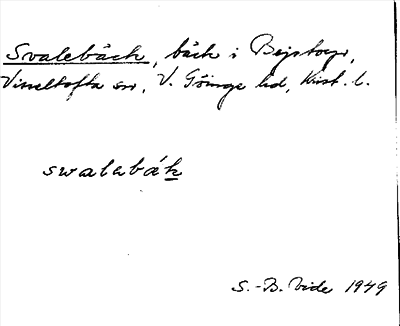 Svalebäck, bäck i Bejstorp,
Visseltofta sn, V. Göinge hd, Krist. l.
swalabák
S.-B. Vide 1949